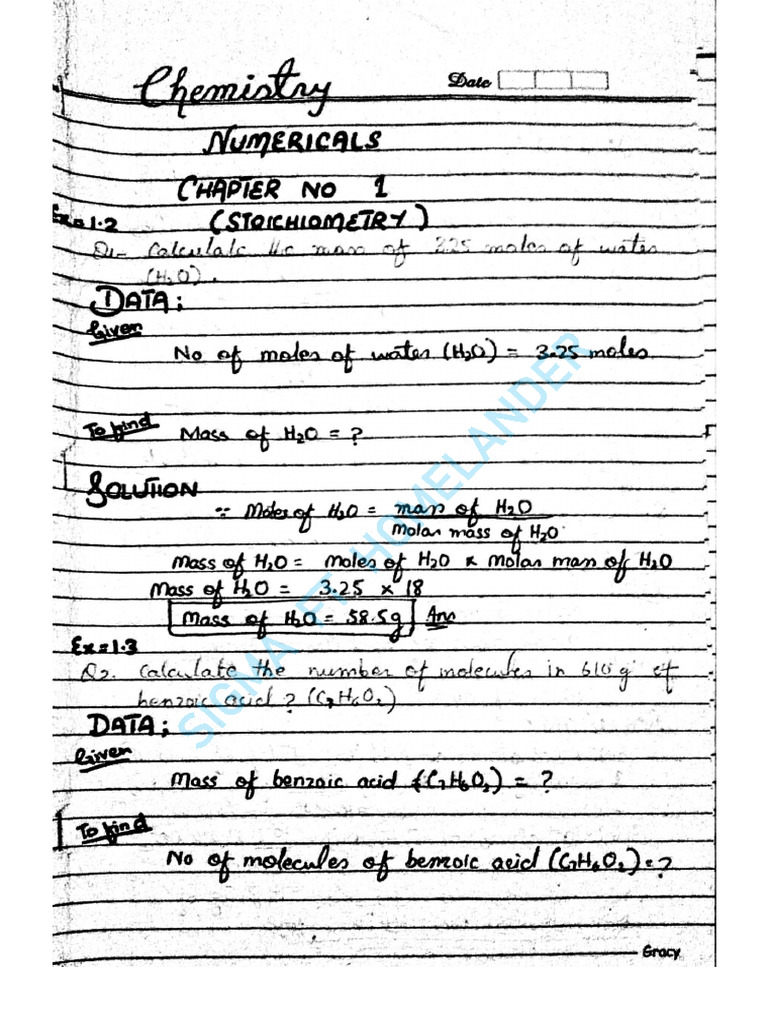 Chemistry Date
NUMERICALS
CHAPTER NO 1
Ex=1.2 (STOICHIOMETRY)
Q1- Calculate the mass of 3.25 moles of water
(H2O).
DATA;
Given
No of moles of water (H2O) = 3.25 moles
To find Mass of H2O = ?
SOLUTION
∵ Moles of H2O = mass of H2O
Molar mass of H2O
Mass of H2O = Moles of H2O x Molar mass of H2O
Mass of H2O = 3.25 x 18
Mass of H2O = 58.5g Ans
Ex=1.3
Q2. Calculate the number of molecules in g of
benzoic acid? (C7H6O2)
DATA;
Given
Mass of benzoic acid (C7H6O2) = ?
To find
No of molecules of benzoic acid (C7H6O2)=?
Gracy
SIGMA FT. HOMELANDER